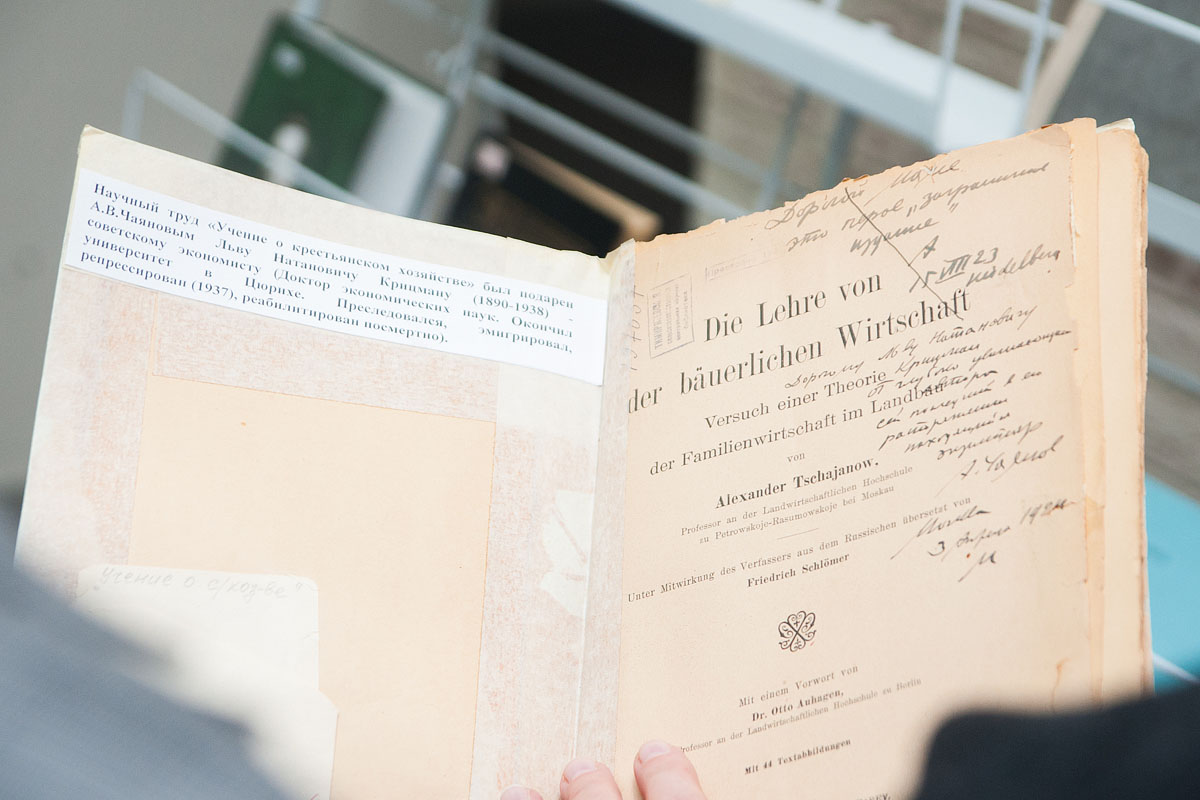 Научный труд «Учение о крестьянском хозяйстве» был подарен
А.В.Чаяновым Льву Натановичу Крицману (1890-1938) -
советскому экономисту (Доктор экономических наук. Окончил
университет в Цюрихе. Преследовался, эмигрировал,
репрессирован (1937), реабилитирован посмертно).
"Учение о с/хоз-ве"
Дорогой
это первое „заграничное
издание"
15 VIII 23
Heidelberg
Die Lehre von
der bäuerlichen Wirtschaft
Дорогому Льву Натановичу
Крицману
Versuch einer Theorie
от глубоко уважающего
автора
der Familienwirtschaft im Landbau
сей последний в его
распоряжении
находящийся
экземпляр
von
Alexander Tschajanow.
Professor an der Landwirtschaftlichen Hochschule
zu Petrowskoje-Rasumowskoje bei Moskau
А. Чаянов
Москва
3 1924
Unter Mitwirkung des Verfassers aus dem Russischen übersetzt von
Friedrich Schlömer
Mit einem Vorwort von
Dr. Otto Auhagen,
Professor an der Landwirtschaftlichen Hochschule zu Berlin
Mit 44 Textabbildungen